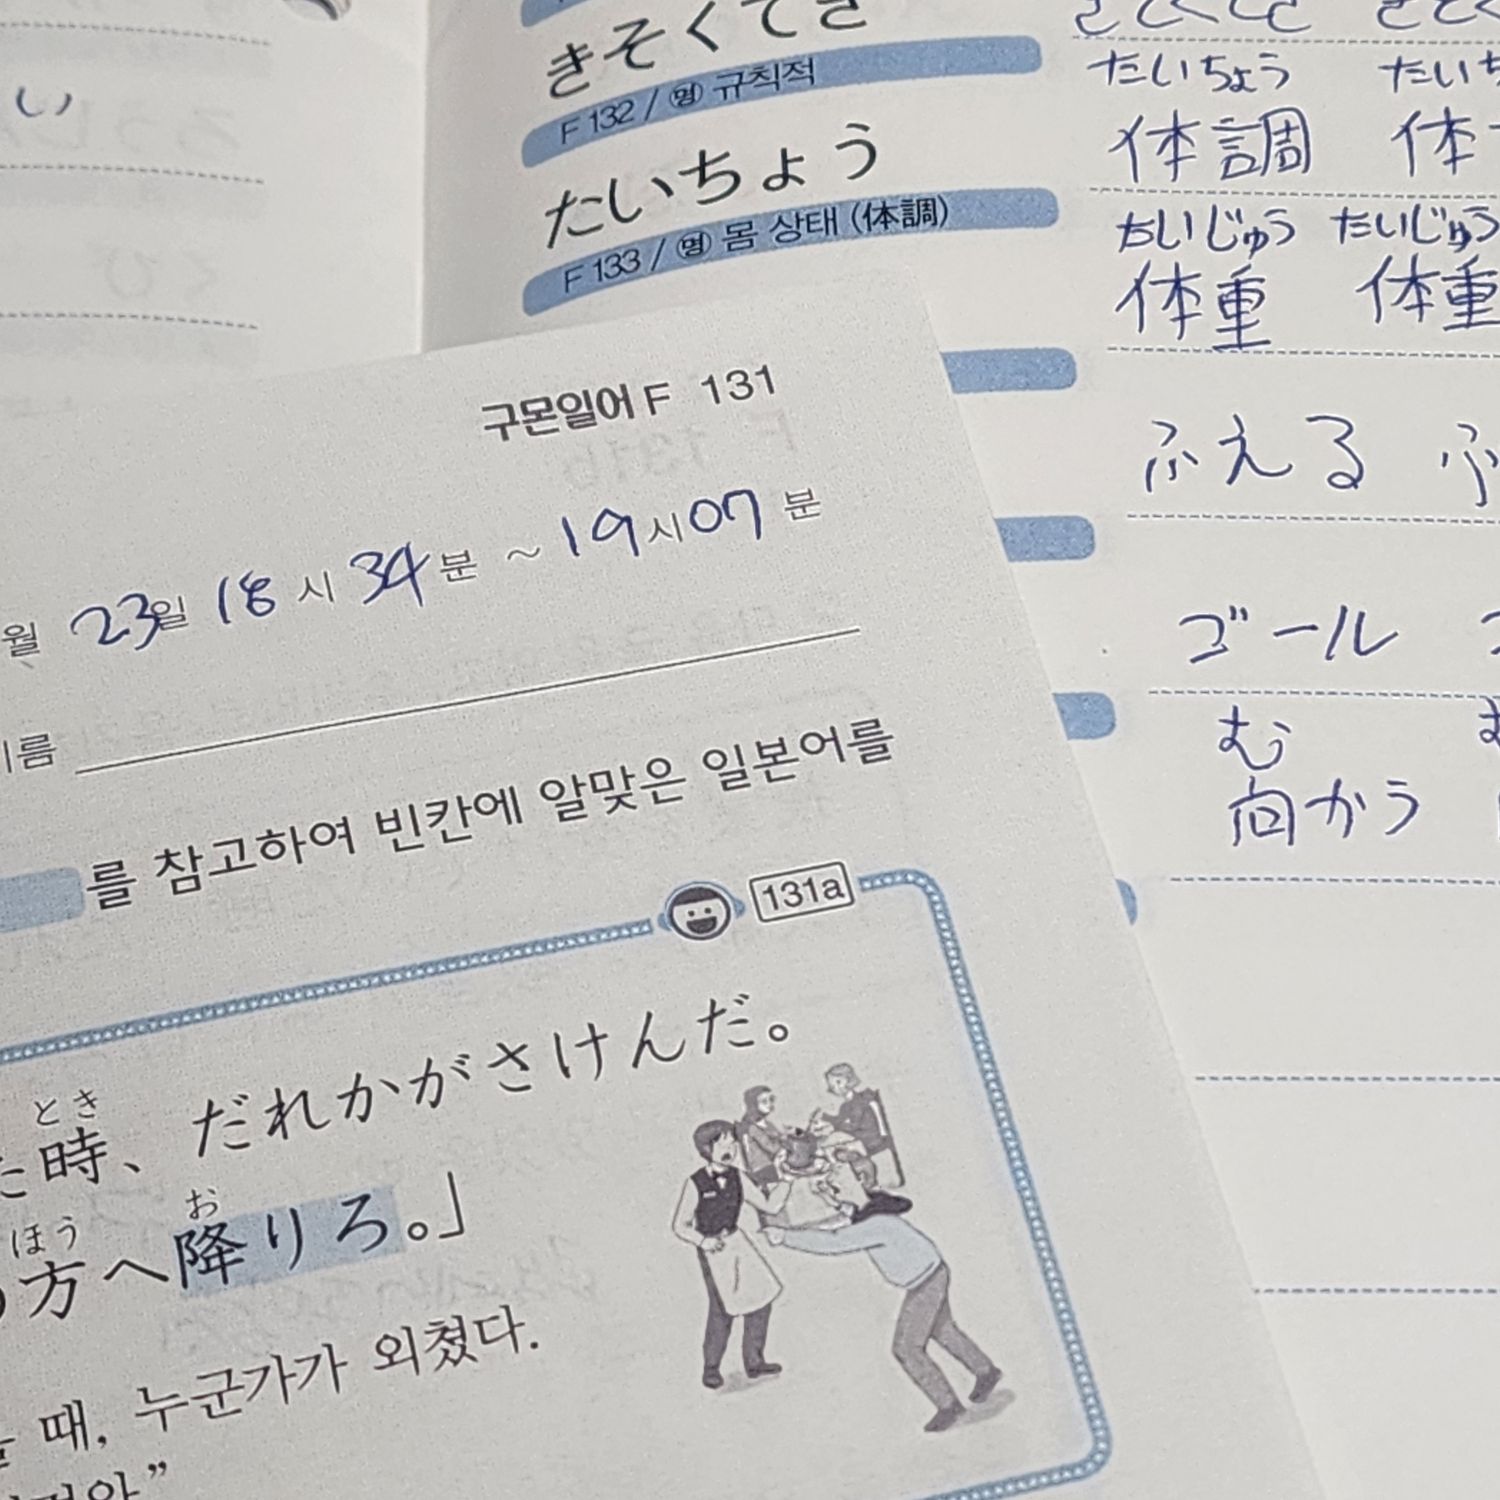 い
きそくてき
F 132 / 명 규칙적
たいちょう
F 133 / 명 몸 상태 (体調)
たいちょう
体調 体
たいじゅう たいじゅう
体重 体重
ふえる ふ
ゴール
む む
向かう
구몬일어 F 131
월 23일 18시 34분 ~ 19시 07분
이름
를 참고하여 빈칸에 알맞은 일본어를
131a
とき
た時、だれかがさけんだ。
ほう お
方へ降りろ。」
때, 누군가가 외쳤다.